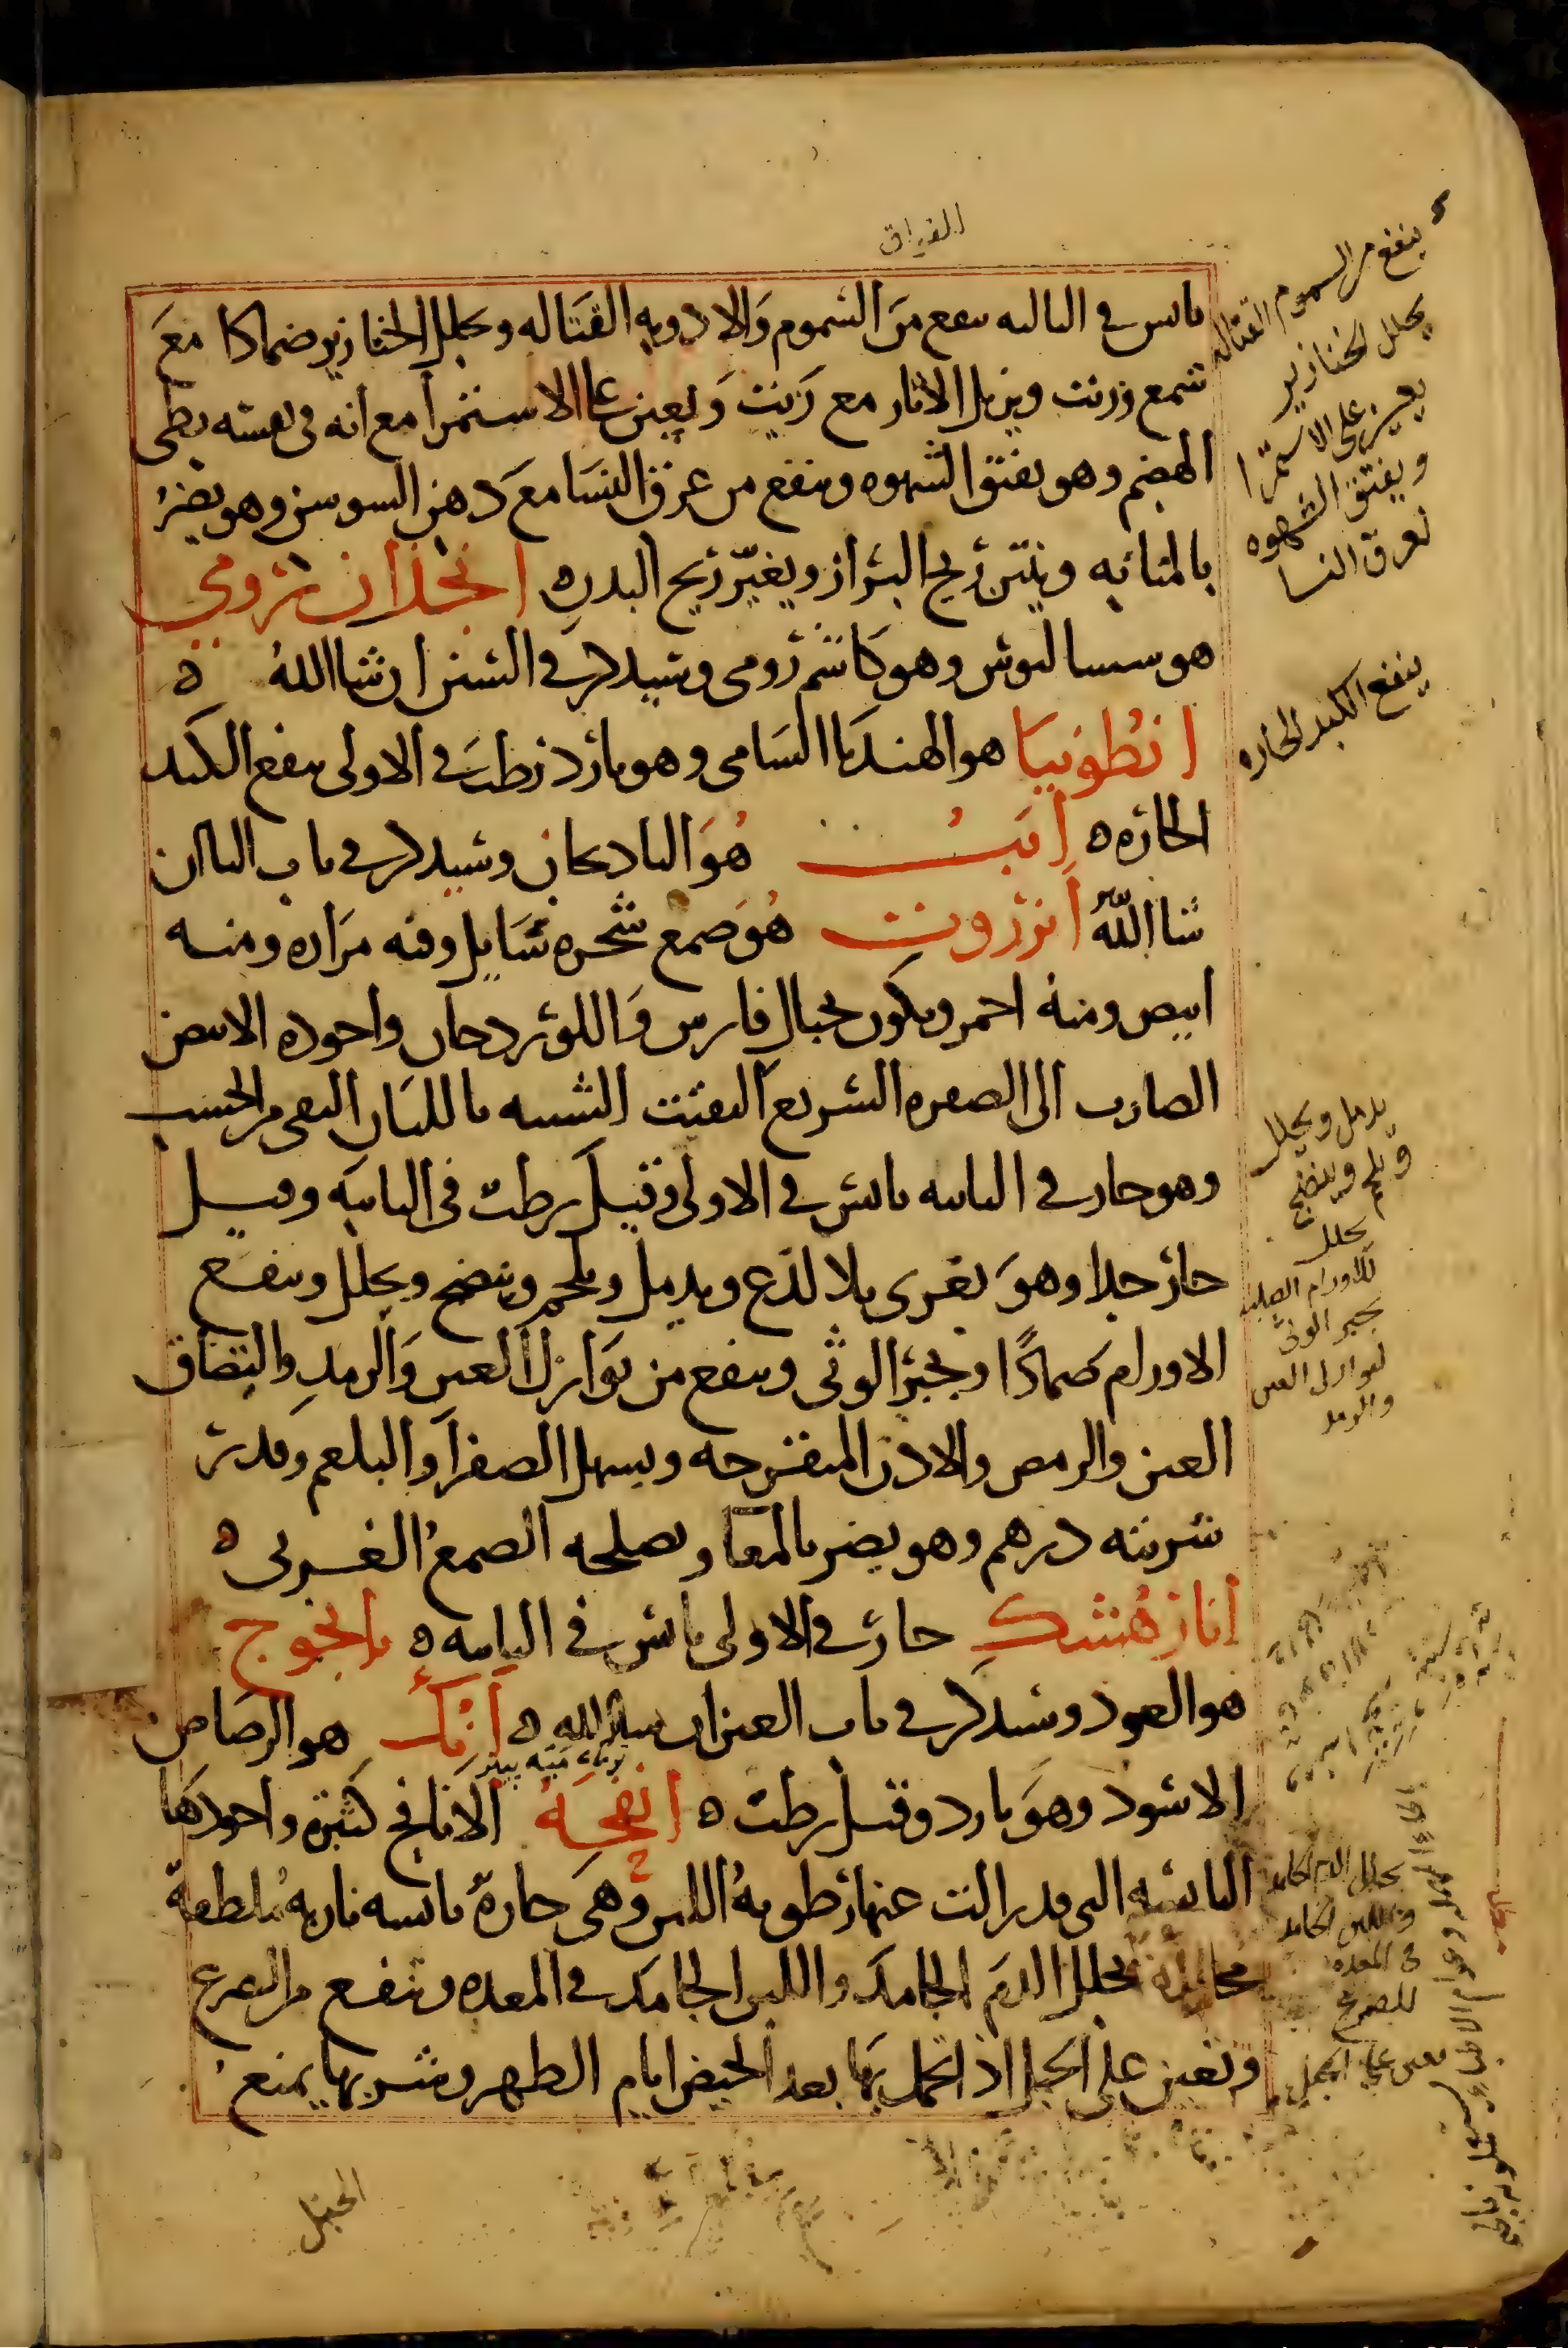 يابس في الثالثه ينفع من السموم والادويه القتاله ويحلل الخنازير ضمادا مع
شمع وزيت ويزيل الاثار مع زيت ويعين على الاستمرا مع انه في نفسه بطي
الهضم وهو يفتق الشهوه وينفع من عرق النسا مع دهن السوسن وهو يضر
بالمثانه وينتن ريح البراز ويغير ريح البدن ه انجدان رومي
هو سيساليوس وهو كاشم رومي وسيذكر في السين ان شا الله ه
انطونيا هو الهندبا الشامي وهو بارد رطب في الاولى ينفع الكبد
الحاره ه انب هو الباذنجان وسيذكر في باب البا ان
شا الله انزروت هو صمغ شجره شايك وفيه مراره ومنه
ابيض ومنه احمر ويكون بجبال فارس واللورد جان واجوده الابيض
الضارب الى الصفره السريع التفتت الشبيه باللبان النقي من الخشب
وهو حار في الثانيه يابس في الاولى وقيل رطب في الثانيه وقيل
حار جدا وهو يغري بلا لذع ويدمل ويلحم وينضج ويحلل وينفع
الاورام ضمادا ويجبر الوثى وينفع من نوازل العين والرمد والتصاق
العين والرمص والاذن المتقرحه ويسهل الصفرا والبلغم وقدر
شربته درهم وهو يضر بالمعا ويصلحه الصمغ العربي ه
انارهشك حار في الاولى يابس في الثانيه ه يانجوج
هو العود وسيذكر في باب العين ان شا الله ه انك هو الرصاص
الاسود وهو بارد وقيل رطب ه انفحه الانافح كثيره واجودها
اليابسه التي قد زالت عنها رطوبه اللبن وهي حاره يابسه ناريه ملطفه
محلله تحلل الدم الجامد واللبن الجامد في المعده وتنفع من الصرع
وتعين على الحبل اذا تحمل بها بعد الحيض ايام الطهر وشربها يمنع
الحبل
ينفع من السموم القتاله
يحلل الخنازير
يعين على الاستمرا
ويفتق الشهوه
لعرق النسا
ينفع الكبد الحاره
يدمل ويحلل
ويلحم وينضج
يحلل
للاورام الصلبه
يجبر الوثى
لنوازل العين
والرمد
يحلل الدم الجامد
واللبن الجامد
في المعده
للصرع
يعين على الحبل